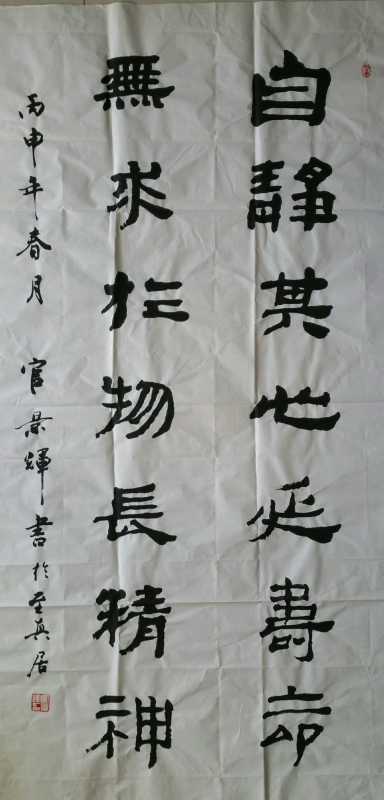 自靜其心延壽命
無求於物長精神
丙申年春月 官景輝書於至真居